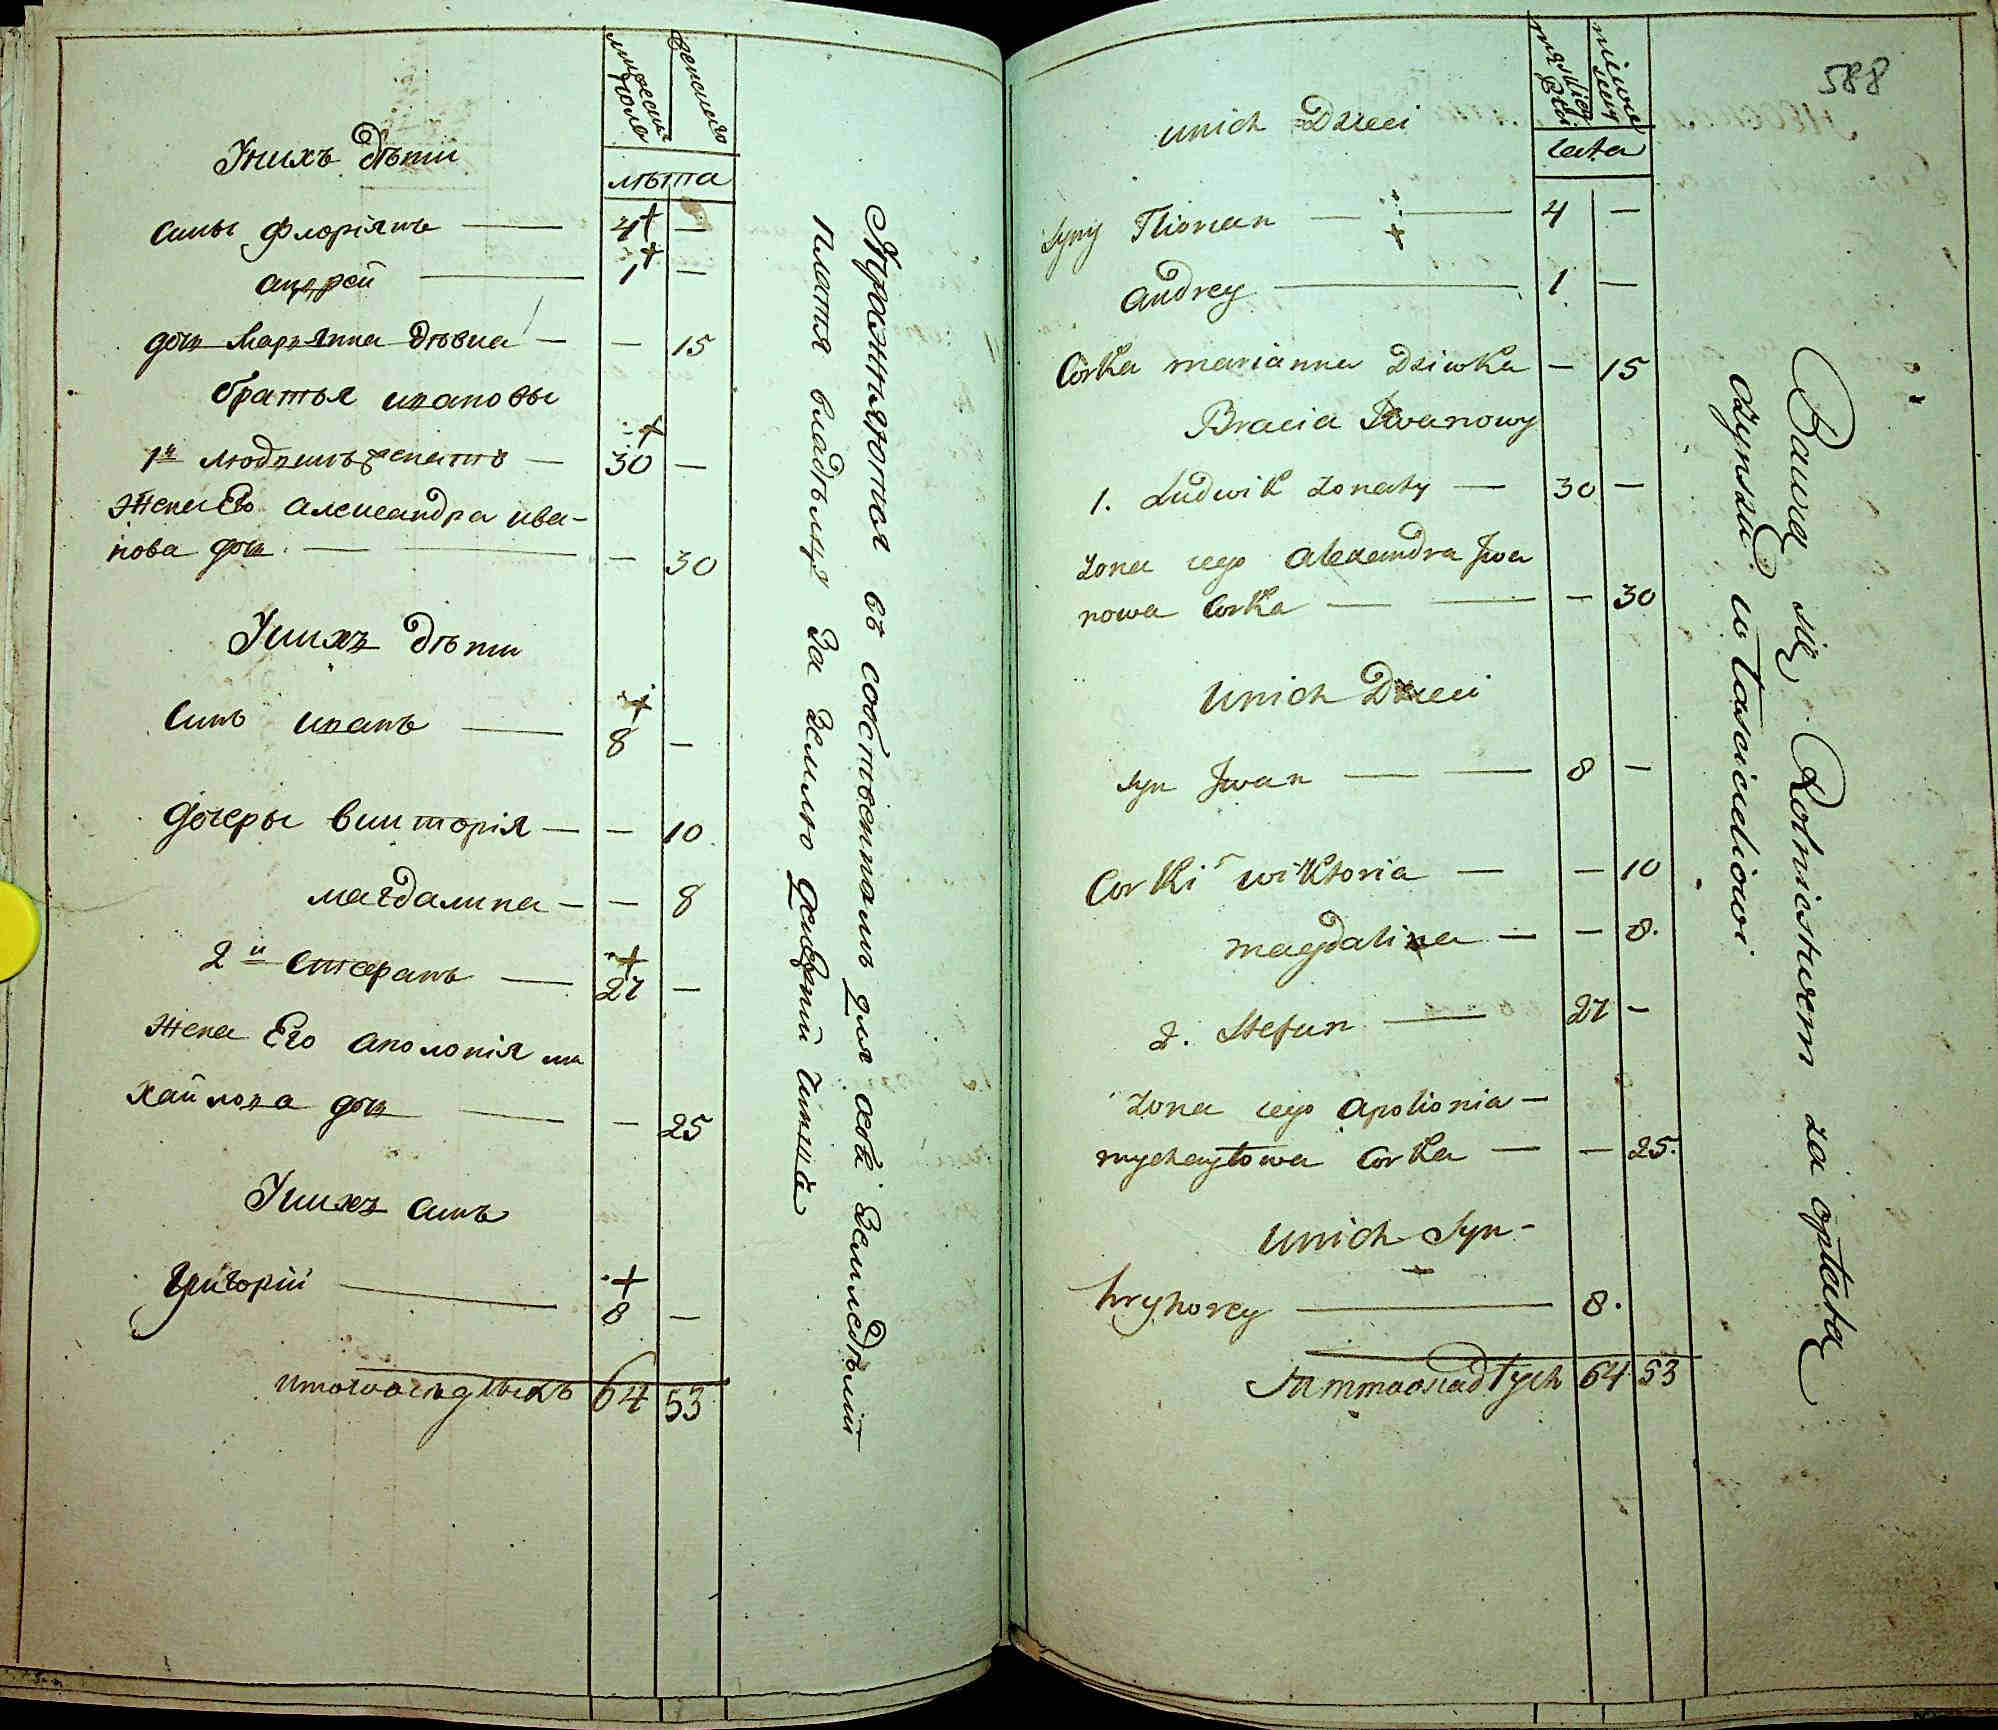 мужеска
пола
женскаго
лѣта
У нихъ дѣти
сыны Флоріянъ — 4 —
андрей — 1 —
дочь Маріянна дѣвка — — 15
братья ивановы
1й людвикъ женатъ — 30 —
Жена Его александра ива-
нова дочь — — 30
У нихъ дѣти
Сынъ иванъ — 8 —
дочеры викторія — — 10
магдалина — — 8
2й Стефанъ — 27 —
Жена Его аполонія ми
хайлова дочь — — 25
У нихъ сынъ
Григорій — 8 —
итого осѣдлыхъ 64 53
Упражняются въ собственномъ для себѣ Земледѣліи
платя владѣльцу За Землю денежный чиншъ
588
męskiey
płci
niewie
sciey
Lata
u nich Dzieci
Syny Florian — 4 —
Andrey — 1 —
Corka marianna Dziwka — 15
Bracia Iwanowy
1. Ludwik żonaty — 30 —
Zona iego Alexandra Iwa
nowa Corka — — 30
u nich Dzieci
syn Iwan — 8 —
Corki wiktoria — — 10
magdalina — — 8.
2. Stefan — 27 —
Zona iego Apolionia —
mychayłowa Corka — — 25.
u nich Syn -
hryhorey — 8.
Summa osiadłych 64 53
Bawią się Rolnictwem za opłatą
Czynszu właścicielowi